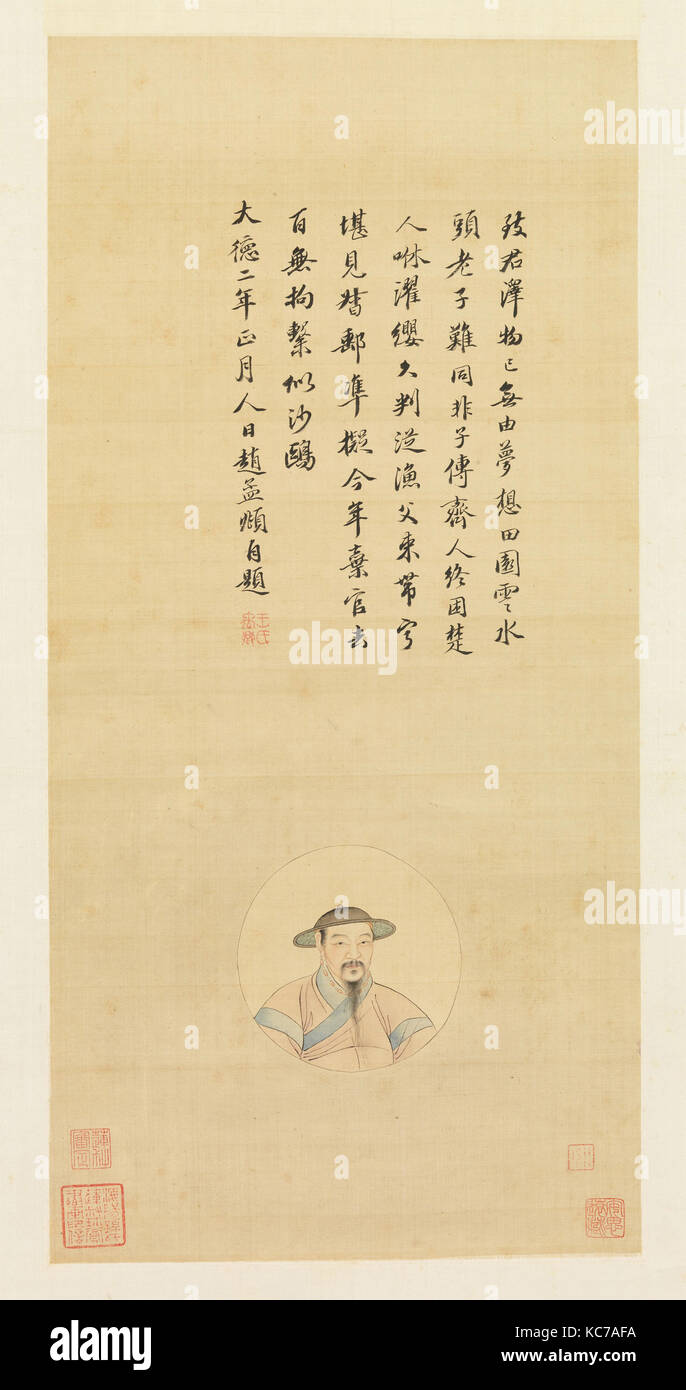 致君澤物已無由夢想田園雲水
頭老子難同非子傳齊人終困楚
人咻濯纓久判從漁父束帶寧
堪見督郵準擬今年棄官去
百無拘繫似沙鷗
大德二年正月人日趙孟頫自題
alamy
www.alamy.com
KC7AFA